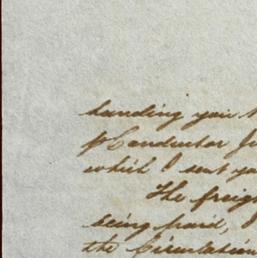 handing you
Conductor
which I sent yo
The freigh
being paid, I
the Circulation